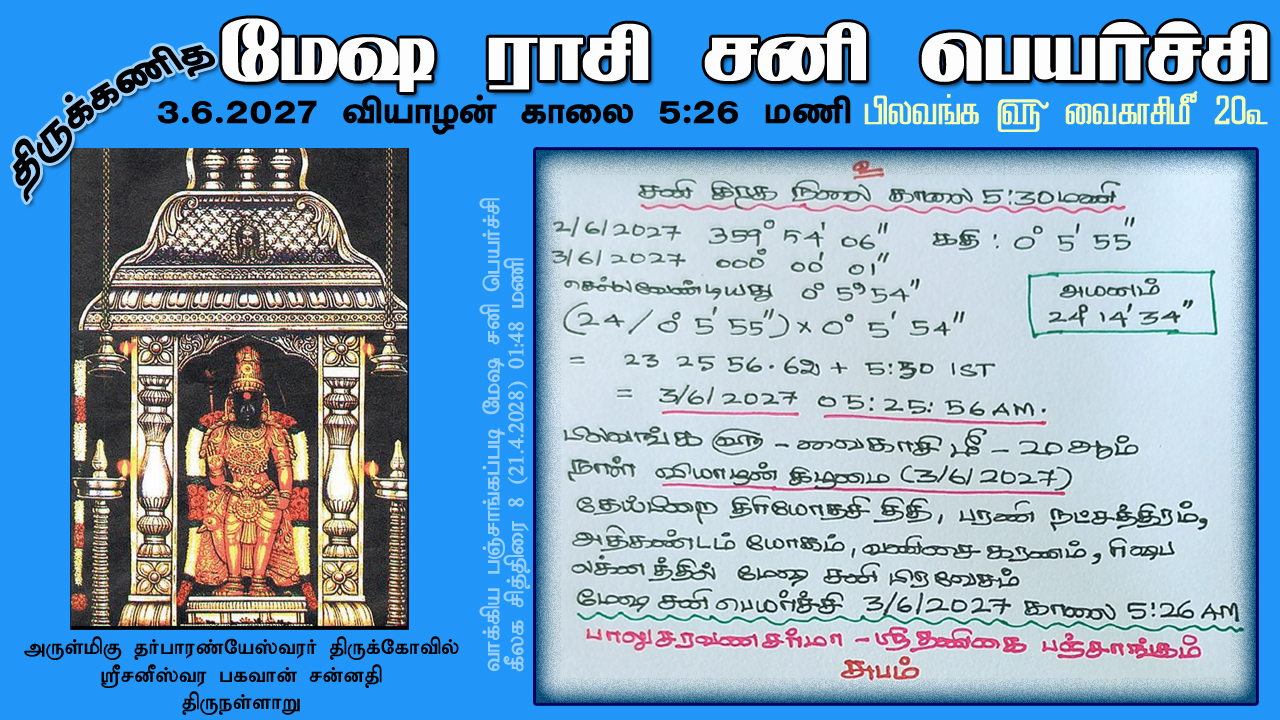 திருக்கணித
மேஷ ராசி சனி பெயர்ச்சி
3.6.2027 வியாழன் காலை 5:26 மணி பிலவங்க ௵ வைகாசிமீ 20௨
உ
சனி கிரக நிலை காலை 5:30 மணி
2/6/2027 359° 54' 06" கதி : 0° 5' 55"
3/6/2027 000° 00' 01"
செல்லவேண்டியது 0° 5' 54"
அயனம்
24° 14' 34"
(24 / 0° 5' 55") × 0° 5' 54"
= 23 25 56.62 + 5:30 IST
= 3/6/2027 05:25:56 AM.
பிலவங்க ௵ - வைகாசி மீ - 20 ஆம்
நாள் வியாழன் கிழமை (3/6/2027)
தேய்பிறை திரயோதசி திதி, பரணி நட்சத்திரம்,
அதிகண்டம் யோகம், வணிசை கரணம், ரிஷப
லக்னத்தில் மேஷ சனி பிரவேசம்
மேஷ சனி பெயர்ச்சி 3/6/2027 காலை 5:26 AM
பாலுசரவணசர்மா - ஸ்ரீ தணிகை பஞ்சாங்கம்
சுபம்
வாக்கிய பஞ்சாங்கப்படி மேஷ சனி பெயர்ச்சி
கீலக சித்திரை 8 (21.4.2028) 01:48 மணி
அருள்மிகு தர்பாரண்யேஸ்வரர் திருக்கோவில்
ஸ்ரீசனீஸ்வர பகவான் சன்னதி
திருநள்ளாறு